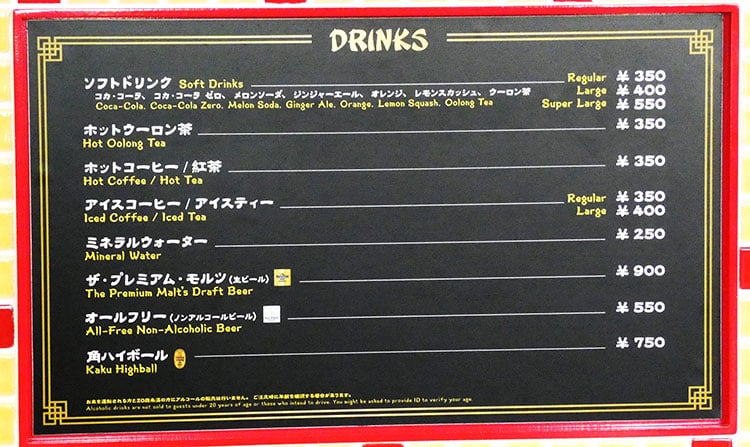 DRINKS
ソフトドリンク Soft Drinks Regular ¥ 350
コカ・コーラ、コカ・コーラ ゼロ、メロンソーダ、ジンジャーエール、オレンジ、レモンスカッシュ、ウーロン茶 Large ¥ 400
Coca-Cola. Coca-Cola Zero. Melon Soda. Ginger Ale. Orange. Lemon Squash. Oolong Tea Super Large ¥ 550
ホットウーロン茶 ¥ 350
Hot Oolong Tea
ホットコーヒー / 紅茶 ¥ 350
Hot Coffee / Hot Tea
アイスコーヒー / アイスティー Regular ¥ 350
Iced Coffee / Iced Tea Large ¥ 400
ミネラルウォーター ¥ 250
Mineral Water
ザ・プレミアム・モルツ (生ビール) ¥ 900
The Premium Malt's Draft Beer
オールフリー (ノンアルコールビール) ¥ 550
All-Free Non-Alcoholic Beer
角ハイボール ¥ 750
Kaku Highball
お車を運転される方と20歳未満の方にアルコールの販売は行いません。ご注文時に年齢を確認する場合があります。
Alcoholic drinks are not sold to guests under 20 years of age or those who intend to drive. You might be asked to provide ID to verify your age.